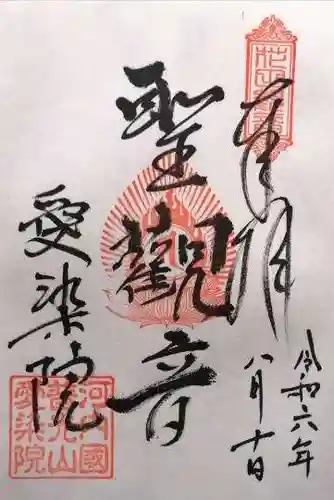 奉拝
聖觀音
愛染院
令和六年
八月十日
河内國
光山
愛染院